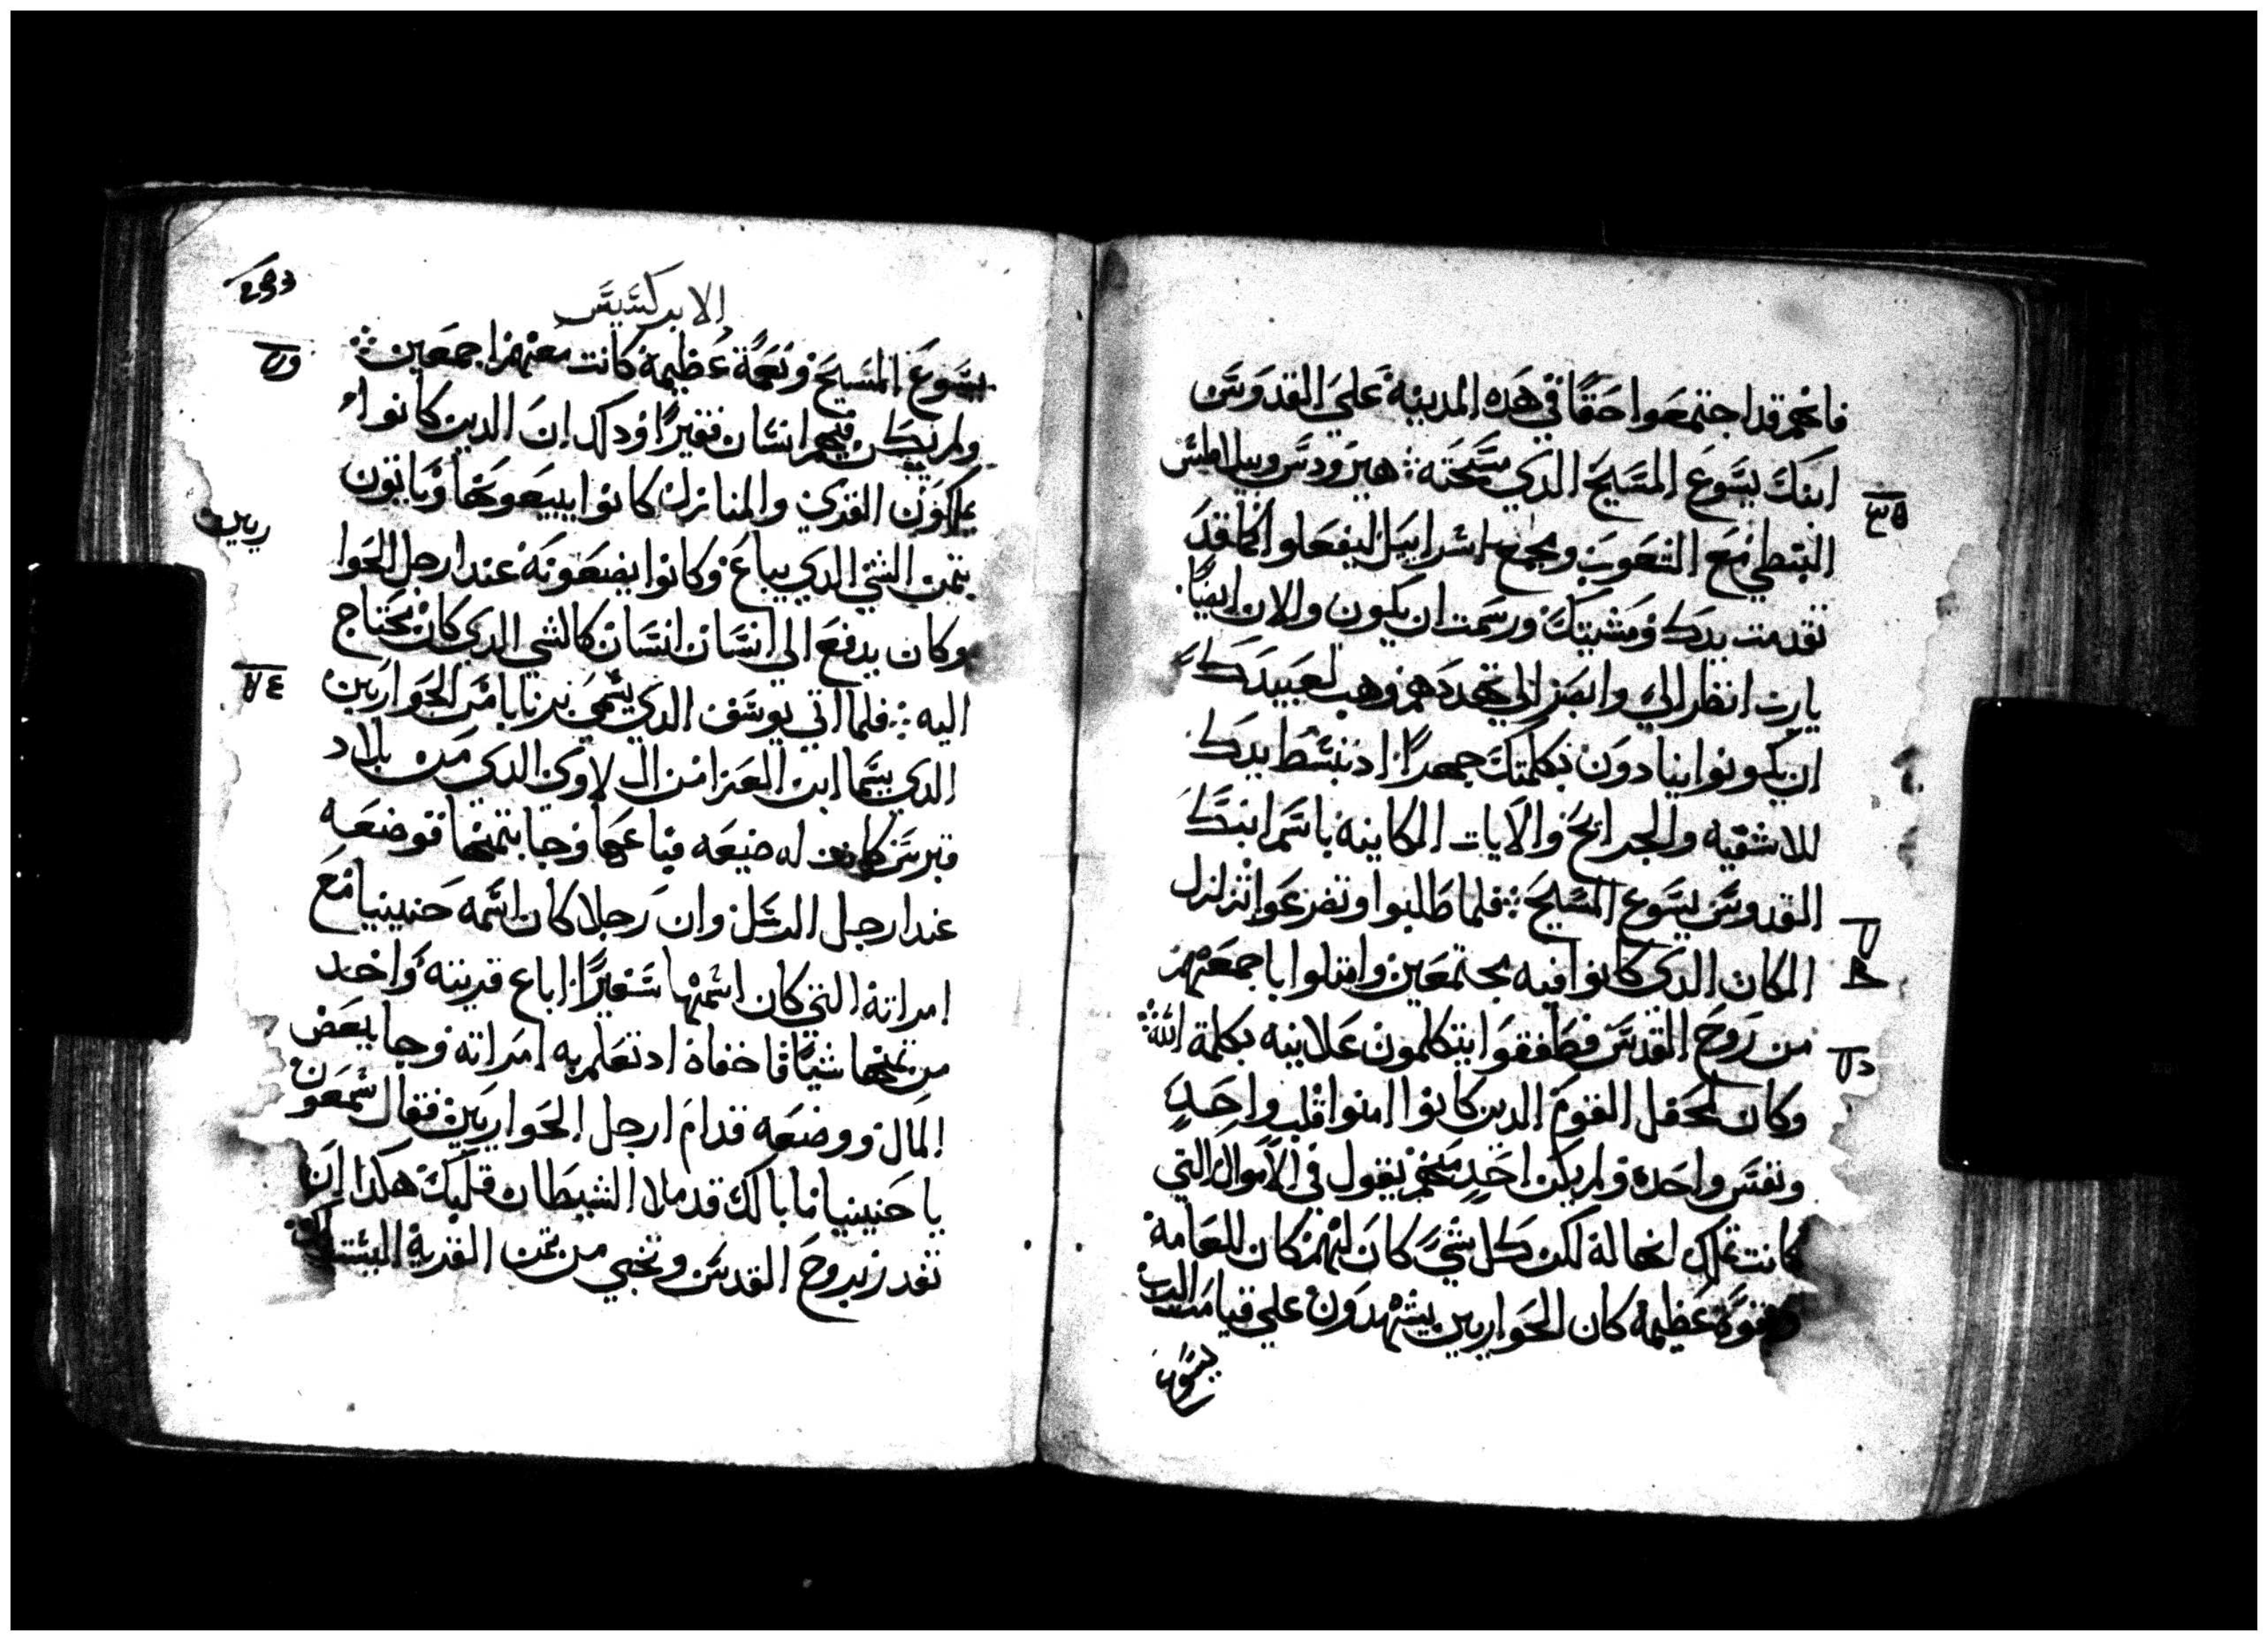 فانهم قد اجتمعوا حقًا في هذه المدينة علي القدوس
ابنك يسوع المسيح الذي مسحته ⁘ هيرودس وبيلاطس
النبطي مع الشعوب ومجمع اسراييل ليفعلوا كما قد
تقدمت يدك ومشيتك ورسمت ان يكون والان ايضًا
يارب انظر الي وابصر الي تهددهم وهب لعبيدك
ان يكونوا ينادون بكلمتك جهرًا اد تبسط يدك
للاشفيه والجرايح والايات الكاينه باسم ابنك
القدوس يسوع المسيح ⁘ فلما طلبوا وتضرعوا تزلزل
المكان الدي كانوا فيه مجتمعين وامتلوا باجمعهم
من روح القدس فطفقوا يتكلمون علانيه بكلمة الله ⁘
وكان لمحفل القوم الدين كانوا امنوا قلب واحد
ونفس واحده ولم يكن احد منهم يقول في الاموال التي
كانت تملك انها له لكن كل شي كان لهم كان للعامة
وبقوة عظيمة كان الحواريين يشهدون علي قيامت الرب
يسوع
الابركسيس
يسوع المسيح ونعمة عظيمة كانت معهم اجمعين ⁘
ولم يكن فيهم انسان فقيرًا ودلك ان الدين كانوا
يملكون القري والمنازل كانوا يبيعونها وياتون
بتمن الشي الدي يباع وكانوا يضعونه عند ارجل الحوا
ريين
وكان يدفع الي انسان انسان كالشي الدي كان يحتاج
اليه ⁘ فلما اتي يوسف الدي يسمي برنابا من الحواريين
الدي يسما ابن العزا من ال لاوي الدي من بلاد
قبرس كانت له ضيعه فباعها وجا بتمنها فوضعه
عند ارجل الرسل وان رجلا كان اسمه حنينيا مع
امراته التي كان اسمها سفيرًا اباع قريته واخد
من تمنها شيًا فاخفاه اد تعلم به امراته وجا ببعض
المال ووضعه قدام ارجل الحواريين فقال شمعون
يا حنينيا ما بالك قد ملا الشيطان قلبك هكدا ان
تغدر بروح القدس وتخبي من تمن القرية